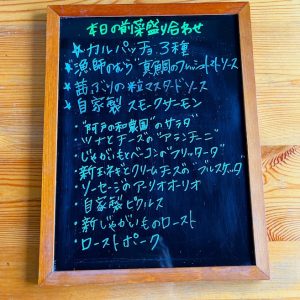 本日の前菜盛り合わせ
★カルパッチョ3種
★"漁師のむら"真鯛のフレッシュトマトソース
★茜ぶりの粒マスタードソース
★自家製スモークサーモン
・"阿戸の和農園"のサラダ
・ツナとチーズの"アランチーニ"
・じゃがいもとベーコンの"フリッタータ"
・新玉ネギとクリームチーズの"ブルスケッタ"
・ソーセージのアーリオオーリオ
・自家製ピクルス
・新じゃがいものロースト
・ローストポーク